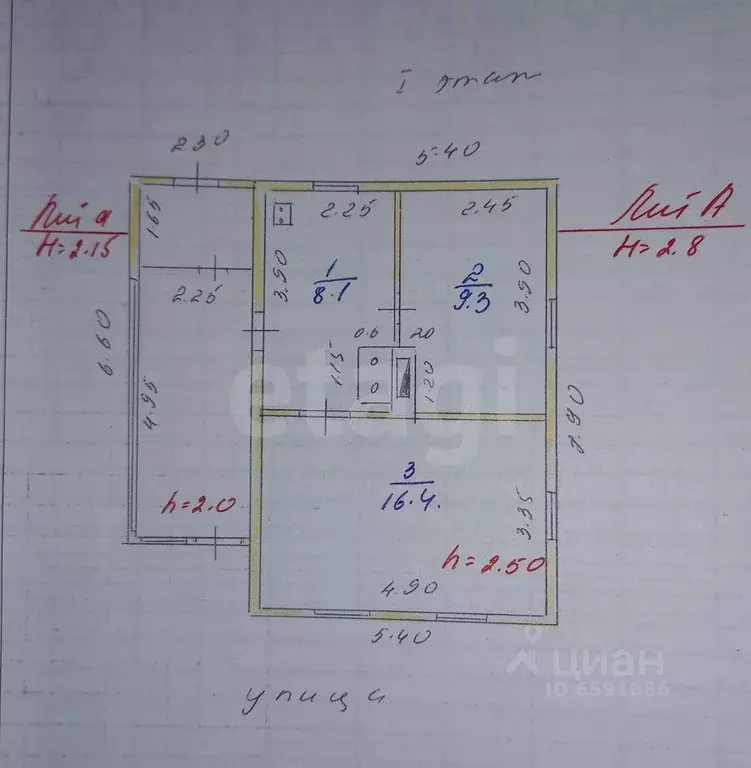 I этаж
2.30
5.40
Лит а
H=2.15
Лит А
H=2.8
1.65
2.25
2.45
3.90
1
8.1
2
9.3
3.90
2.25
6.60
4.95
0.6
20
1.15
1.20
7.90
etagi
3
16.4.
3.35
h=2.0
h=2.50
4.90
5.40
циан
ID 6591886
улица